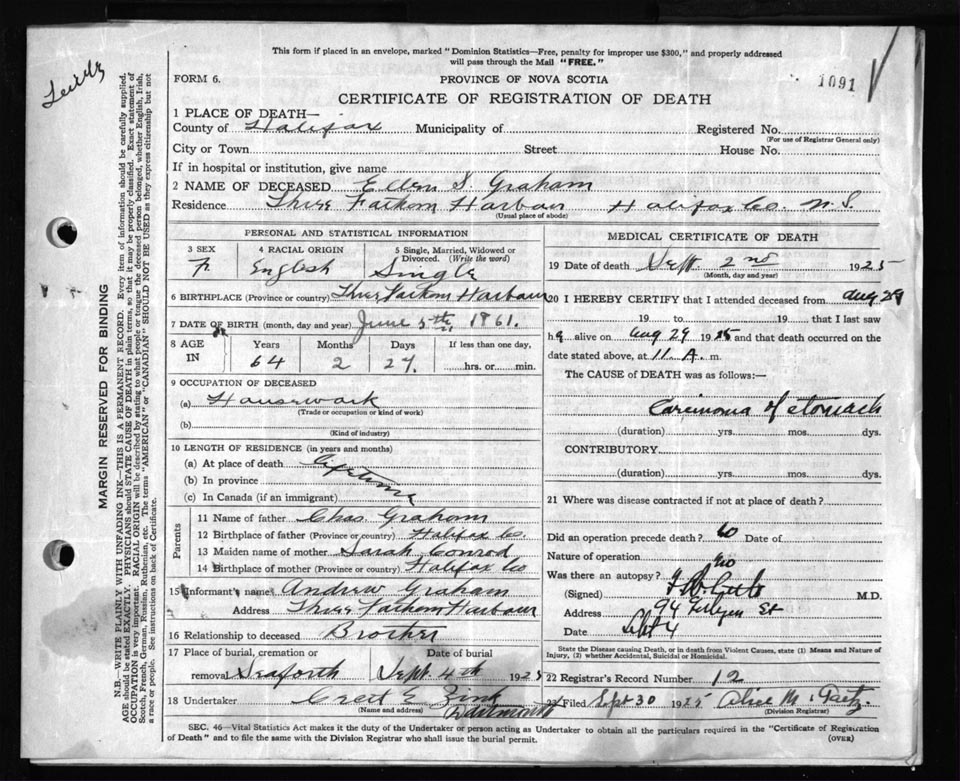 This form if placed in an envelope, marked "Dominion Statistics—Free, penalty for improper use $300," and properly addressed
will pass through the Mail "FREE."
FORM 6.
PROVINCE OF NOVA SCOTIA
1091
CERTIFICATE OF REGISTRATION OF DEATH
MARGIN RESERVED FOR BINDING
N.B.—WRITE PLAINLY WITH UNFADING INK—THIS IS A PERMANENT RECORD. Every item of information should be carefully supplied.
AGE should be stated EXACTLY. PHYSICIANS should STATE CAUSE OF DEATH in plain terms, so that it may be properly classified. Exact statement of
OCCUPATION is very important. RACIAL ORIGIN will be described by stating to what people or tongue the deceased person belonged, whether English, Irish,
Scotch, French, German, Russian, Ruthenian, etc. The terms "AMERICAN" or "CANADIAN" SHOULD NOT BE USED as they express citizenship but not
a race or people. See instructions on back of Certificate.
1 PLACE OF DEATH—
County of Halifax Municipality of Registered No.
(For use of Registrar General only)
City or Town Street House No.
If in hospital or institution, give name
2 NAME OF DECEASED Ellen S. Graham
Residence Three Fathom Harbour Halifax Co. N.S.
(Usual place of abode)
PERSONAL AND STATISTICAL INFORMATION
3 SEX 4 RACIAL ORIGIN 5 Single, Married, Widowed or
Divorced. (Write the word)
F. English Single
6 BIRTHPLACE (Province or country) Three Fathom Harbour
7 DATE OF BIRTH (month, day and year) June 5th 1861.
8 AGE Years Months Days If less than one day,
IN 64 2 27. hrs. or min.
9 OCCUPATION OF DECEASED
(a) Housework
(Trade or occupation or kind of work)
(b)
(Kind of industry)
10 LENGTH OF RESIDENCE (in years and months)
(a) At place of death Lifetime
(b) In province
(c) In Canada (if an immigrant)
Parents
11 Name of father Chas Graham
12 Birthplace of father (Province or country) Halifax Co.
13 Maiden name of mother Sarah Conrod
14 Birthplace of mother (Province or country) Halifax Co
15 Informant's name Andrew Graham
Address Three Fathom Harbour
16 Relationship to deceased Brother
17 Place of burial, cremation or Date of burial
removal Seaforth Sept. 4th 1925
18 Undertaker Zink
(Name and address) Dartmouth
MEDICAL CERTIFICATE OF DEATH
19 Date of death Sept 2nd 1925
(Month, day and year)
20 I HEREBY CERTIFY that I attended deceased from Aug 29
19 to 19 that I last saw
h alive on Aug 29 1925 and that death occurred on the
date stated above, at 11 A. m.
The CAUSE of DEATH was as follows:—
Carcinoma of stomach
(duration) yrs. mos. dys.
CONTRIBUTORY
(duration) yrs. mos. dys.
21 Where was disease contracted if not at place of death?
Did an operation precede death? Date of
Nature of operation
Was there an autopsy? no
(Signed) M.D.
Address 94 St
Date Sept 4
State the Disease causing Death, or in death from Violent Causes, state (1) Means and Nature of
Injury, (2) whether Accidental, Suicidal or Homicidal.
22 Registrar's Record Number 12
23 Filed Sept 30 1925 Alice M. Gaetz.
(Division Registrar)
SEC. 46—Vital Statistics Act makes it the duty of the Undertaker or person acting as Undertaker to obtain all the particulars required in the "Certificate of Registration
of Death" and to file the same with the Division Registrar who shall issue the burial permit.
(OVER)